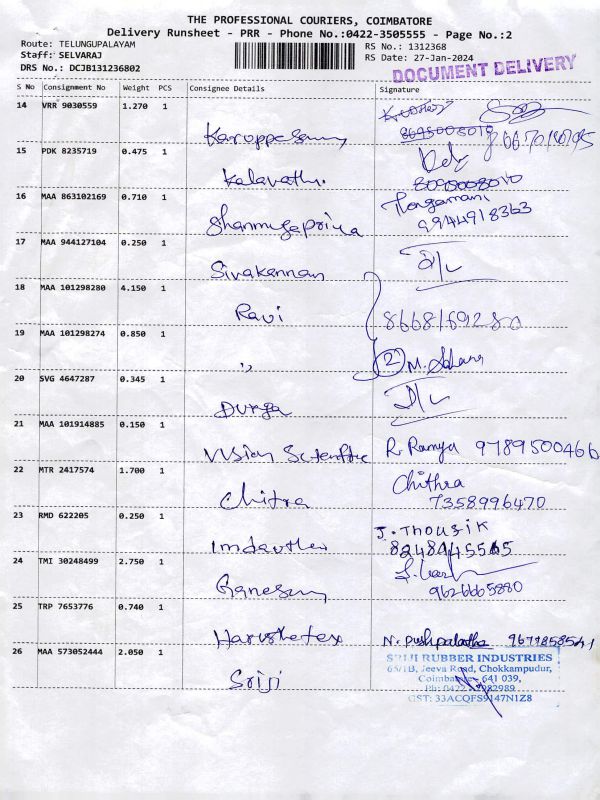 THE PROFESSIONAL COURIERS, COIMBATORE
Delivery Runsheet - PRR - Phone No.:0422-3505555 - Page No.:2
Route: TELUNGUPALAYAM
Staff: SELVARAJ
DRS No.: DCJB131236802
RS No.: 1312368
RS Date: 27-Jan-2024
DOCUMENT DELIVERY
S No Consignment No Weight PCS Consignee Details Signature
14 VRR 9030559 1.270 1
Karuppasamy
15 PDK 8235719 0.475 1
Kalavathi
8095008010
16 MAA 863102169 0.710 1
Shanmugapriya
Thangamani
9944918363
17 MAA 944127104 0.250 1
Sivakannan
D/L
18 MAA 101298280 4.150 1
Ravi
8668169280
19 MAA 101298274 0.850 1
"
2 M.
20 SVG 4647287 0.345 1
Durga
D/L
21 MAA 101914885 0.150 1
Vision Scientific R. Ramya 9789500466
22 MTR 2417574 1.700 1
Chitra
Chithra
7358996470
23 RMD 622205 0.250 1
J. THOUFIK
24 TMI 30248499 2.750 1
Ganesan
9626665880
25 TRP 7653776 0.740 1
Harishetex N. Pushpalatha
26 MAA 573052444 2.050 1
Sriji
SRIJI RUBBER INDUSTRIES
65/1B, Jeeva Road, Chokkampudur,
Coimbatore - 641 039,
Ph: 0422 - 2982989
GST: 33ACQFS9147N1Z8